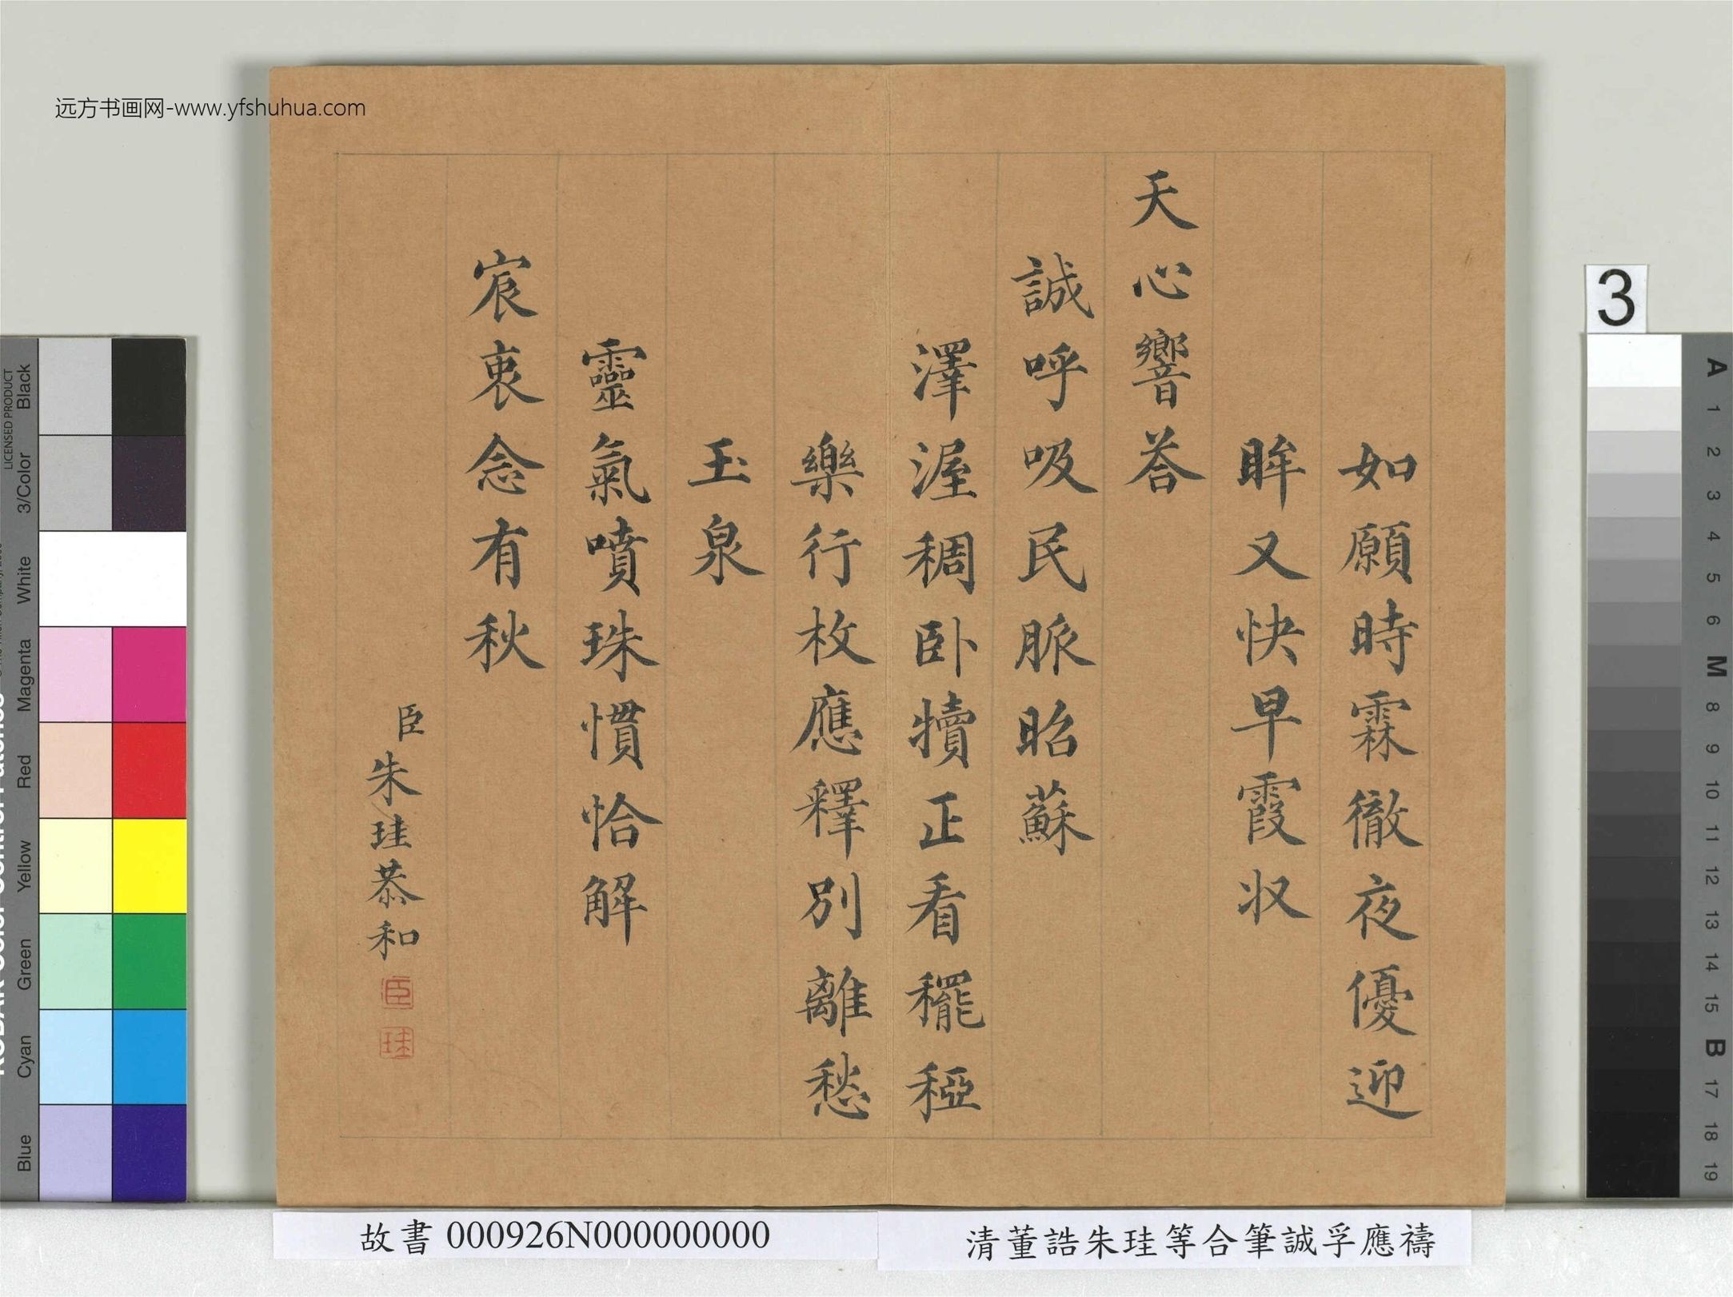 远方书画网-www.yfshuhua.com
如願時霖徹夜優迎
眸又快早霞収
天心響荅
誠呼吸民脈昭蘇
澤渥稠卧犢正看䆉稏
樂行枚應釋別離愁
玉泉
靈氣噴珠慣恰解
宸衷念有秋
臣朱珪恭和
臣
珪
故書 000926N000000000
清董誥朱珪等合筆誠孚應禱
3
A
1
2
3
4
5
6
M
8
9
10
11
12
13
14
15
B
17
18
19
LICENSED PRODUCT
Black
3/Color
White
Magenta
Red
Yellow
Green
Cyan
Blue